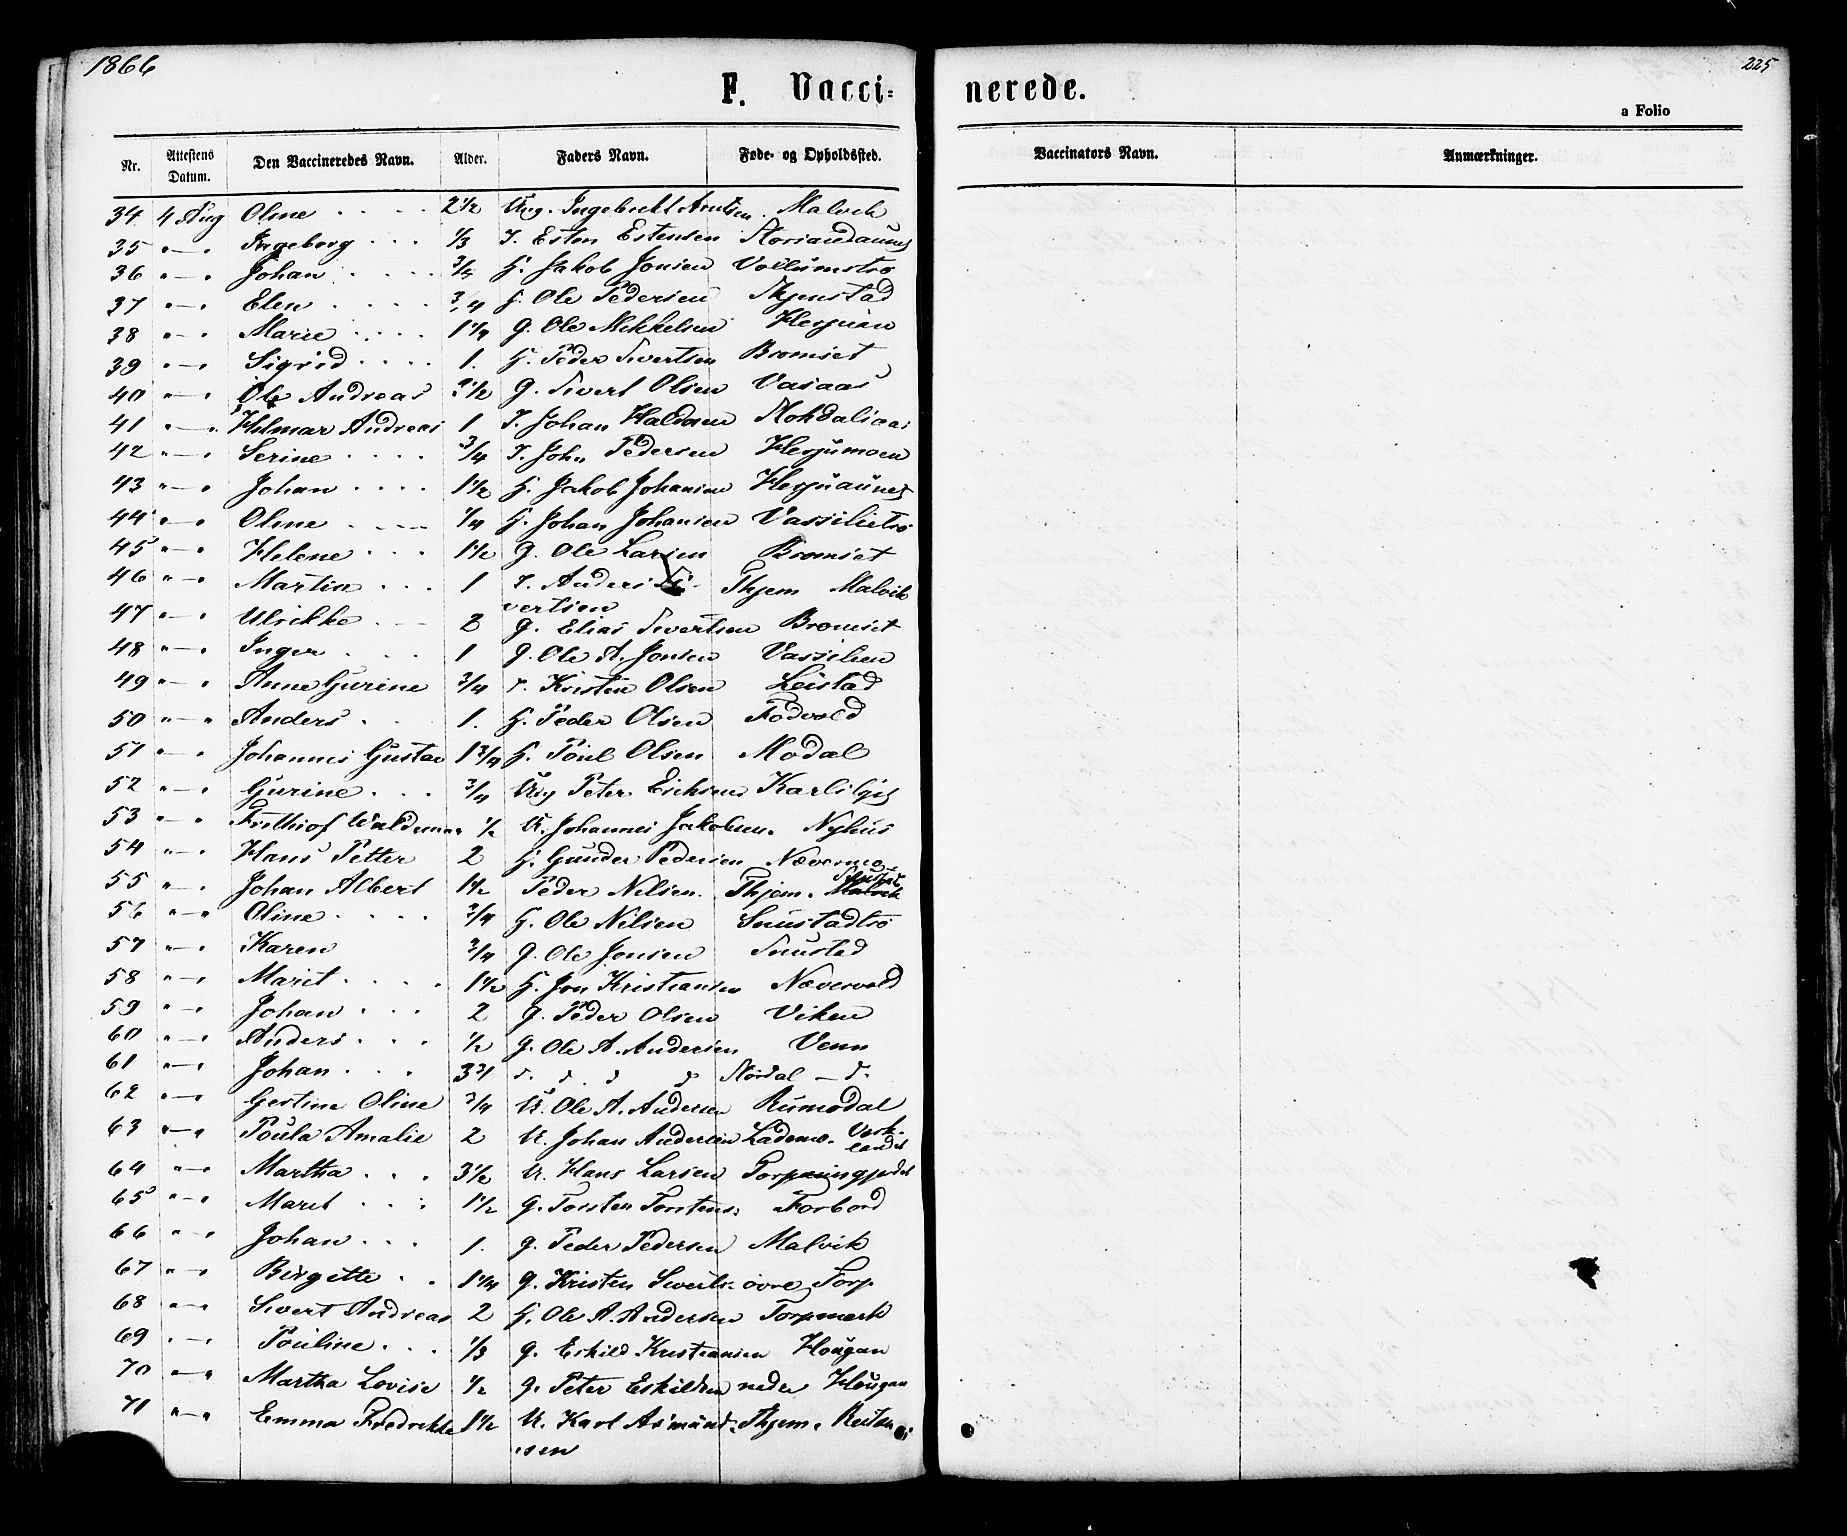 1866
225
F. Vacci= nerede.
a Folio
Nr. Attestens Datum. Den Vaccineredes Navn. Alder. Faders Navn. Føde- og Opholdssted. Vaccinators Navn. Anmærkninger.
34 4 Aug Oline 2 1/2 Ung. Ingebrekt Arntsen Malvik
35 " — " Ingeborg 1/3 I. Esten Estensen
36 " — " Johan 3/4 H. Jakob Jonsen
37 " — " Elen 3/4 G. Ole Pedersen Thjenstad
38 " — " Marie 1 1/4 G. Ole Mikkelsen Hesjuan
39 " — " Sigrid 1. H. Peder Sivertsen Bromset
40 " — " Ole Andreas 2 1/2 G. Sivert Olsen Vasaas
41 " — " Helmar Andreas 1 I. Johan Haldosen
42 " — " Serine 3/4 I. John Pedersen Hesjumoen
43 " — " Johan 1 1/2 H. Jakob Johansen Hesjuaunet
44 " — " Oline 1/4 H. Johan Johansen Vassilietrø
45 " — " Helene 1 1/2 G. Ole Larsen Bromset
46 " — " Martin 1 I. Anders Si-
vertsen Thjem Malvik
47 " — " Ulrikke 2 G. Elias Sivertsen Bromset
48 " — " Inger 1 G. Ole A. Jonsen Vassilien
49 " — " Anne Gurine 3/4 I. Kristen Olsen Leistad
50 " — " Anders 1. H. Peder Olsen Fodvold
51 " — " Johannes Gustav 1 3/4 H. Poul Olsen Modal
52 " — " Gurine 3/4 Ung Peter Eriksen Karlslyst
53 " — " Frithiof Waldemar 1/2 U. Johannes Jakobsen Nyhus
54 " — " Hans Petter 2 H. Gunder Pedersen Nævermo
55 " — " Johan Albert 1 1/2 Peder Nilsen Thjem. Malvik
56 " — " Oline 3/4 H. Ole Nilsen Saustadtrø
57 " — " Karen 3/4 G. Ole Jonsen Saustad
58 " — " Marit 1 1/2 H. Jon Kristiansen Nævervold
59 " — " Johan 2 G. Peder Olsen Viken
60 " — " Anders 1/2 G. Ole A. Andersen Venn
61 " — " Johan 3 3/4 d. d. d d Nordal — d.
62 " — " Gestine Oline 3/4 U. Ole A. Andersen Rumodal
63 " — " Poula Amalie 2 U. Johan Andersen Lademo. Verk-
landet
64 " — " Martha 3 1/2 U. Hans Larsen
65 " — " Marit 1 1/2 G. Torsten Torstens: Forbord
66 " — " Johan 1. G. Peder Pedersen Malvik
67 " — " Birgitte 1 1/4 G. Kristen Siverts: øvre Torp
68 " — " Sivert Andreas 2 H. Ole A. Andersen Torpmark
69 " — " Pouline 1/3 G. Eskild Kristiansen Hougan
70 " — " Martha Lovise 1/2 G. Peter Eskildsen nedre Hougan
71 " — " Emma Fredrikke 1 1/2 U. Karl Asmund-
sen Thjem.